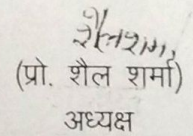 शैलशर्मा
(प्रो. शैल शर्मा)
अध्यक्ष